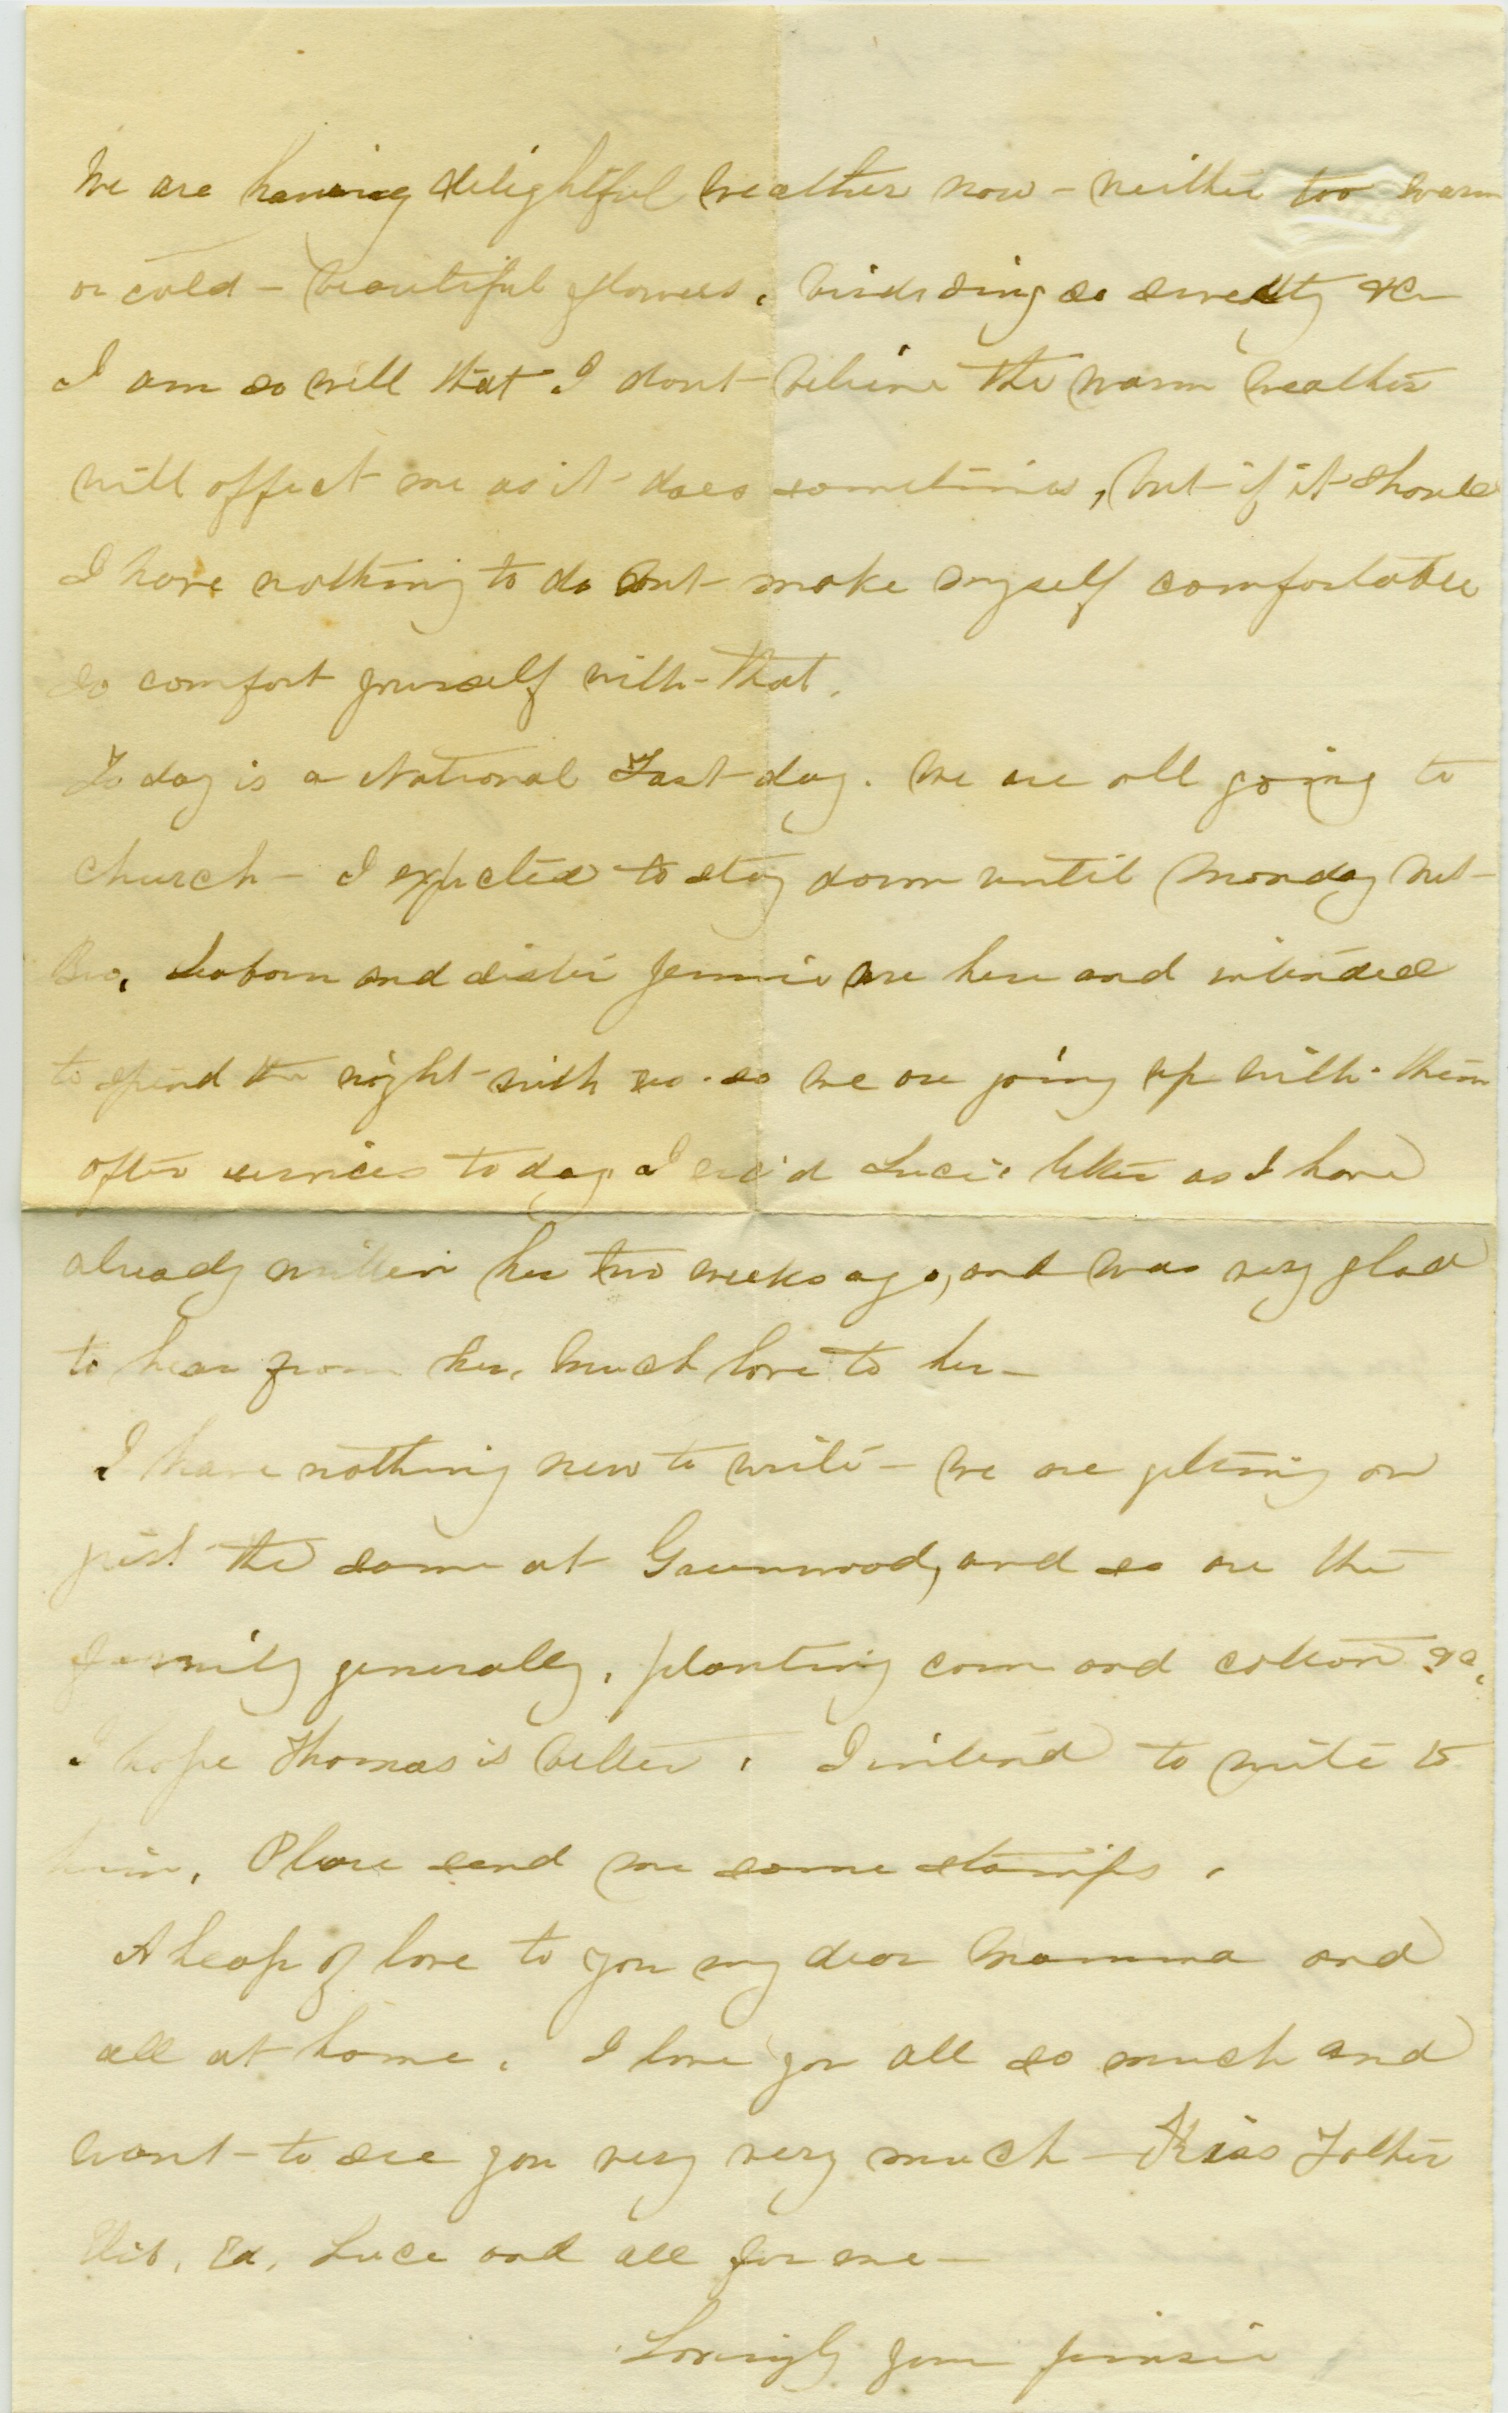 We are having delightful weather now – neither too warm
or cold – beautiful flowers, birds sing so sweetly &c –
I am so well that I dont believe the warm weather
will affect me as it does sometimes, but if it should
I have nothing to do but make myself comfortable
so comfort yourself with that.
To day is a National Fast day. We are all going to
church – I expected to stay down until Monday but
Bro. Seaborn and sister Jennie are here and intended
to spend the night with us. so we are going up with them
after services to day. I rec'd Lucie letter as I have
already written her two weeks ago, and was very glad
to hear from her. Much love to her –
I have nothing new to write – we are getting on
just the same at Greenwood, and so are the
family generally. planting corn and cotton &c.
I hope Thomas is better. I intend to write to
him. Please send me some stamps.
A heap of love to you my dear Mamma and
all at home. I love you all so much and
want to see you very very much – Kiss Father
Ed, Luce and all for me –
Lovingly your